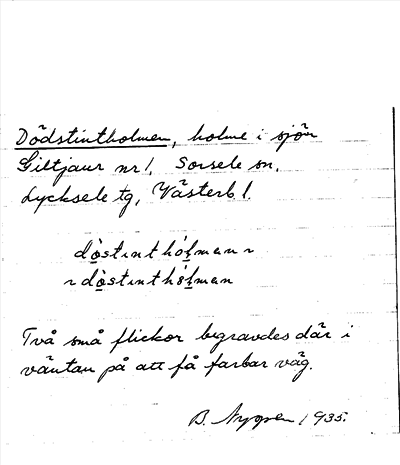 Dödstintholmen, holme i sjön
Giltjaur nr 1, Sorsele sn,
Lycksele tg, Västerb l.
dọ̀stınthólmanı ~
~ dọ̀stınthólman
Två små flickor begravdes där i
väntan på att få farbar väg.
B. Nygren 1935.